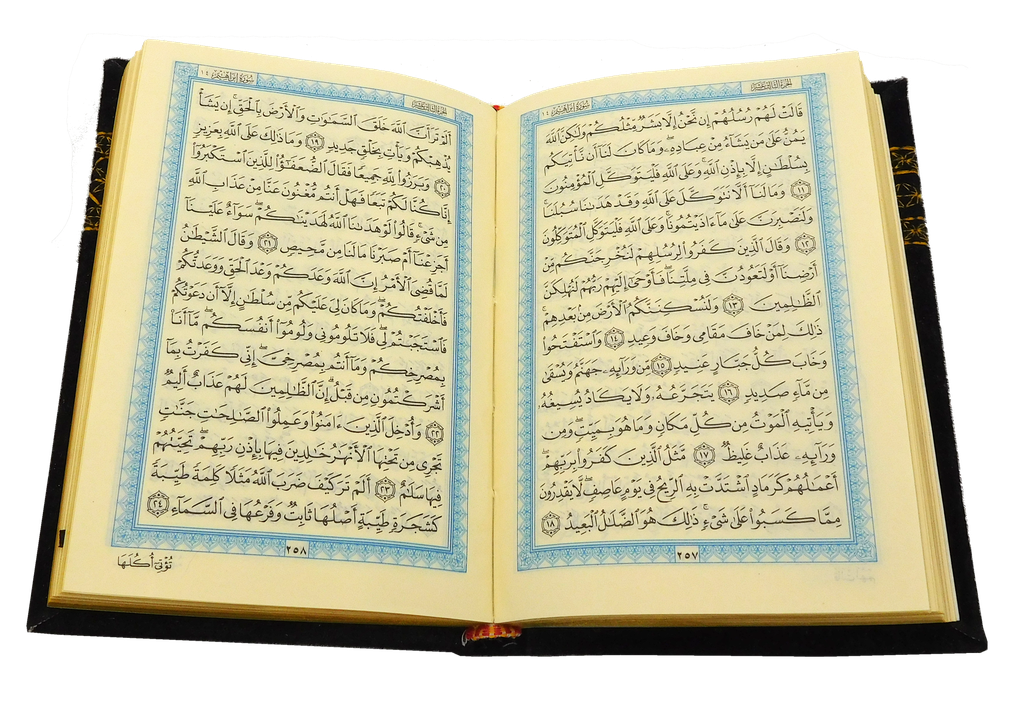 الجزء الثالث عشر
سورة إبراهيم ١٤
قَالَتْ لَهُمْ رُسُلُهُمْ إِن نَّحْنُ إِلَّا بَشَرٌ مِّثْلُكُمْ وَلَٰكِنَّ ٱللَّهَ
يَمُنُّ عَلَىٰ مَن يَشَآءُ مِنْ عِبَادِهِۦ وَمَا كَانَ لَنَآ أَن نَّأْتِيَكُم
بِسُلْطَٰنٍ إِلَّا بِإِذْنِ ٱللَّهِ وَعَلَى ٱللَّهِ فَلْيَتَوَكَّلِ ٱلْمُؤْمِنُونَ
١١ وَمَا لَنَآ أَلَّا نَتَوَكَّلَ عَلَى ٱللَّهِ وَقَدْ هَدَىٰنَا سُبُلَنَا
وَلَنَصْبِرَنَّ عَلَىٰ مَآ ءَاذَيْتُمُونَا وَعَلَى ٱللَّهِ فَلْيَتَوَكَّلِ ٱلْمُتَوَكِّلُونَ
١٢ وَقَالَ ٱلَّذِينَ كَفَرُوا۟ لِرُسُلِهِمْ لَنُخْرِجَنَّكُم مِّنْ
أَرْضِنَآ أَوْ لَتَعُودُنَّ فِى مِلَّتِنَا فَأَوْحَىٰٓ إِلَيْهِمْ رَبُّهُمْ لَنُهْلِكَنَّ
ٱلظَّٰلِمِينَ ١٣ وَلَنُسْكِنَنَّكُمُ ٱلْأَرْضَ مِنۢ بَعْدِهِمْ
ذَٰلِكَ لِمَنْ خَافَ مَقَامِى وَخَافَ وَعِيدِ ١٤ وَٱسْتَفْتَحُوا۟
وَخَابَ كُلُّ جَبَّارٍ عَنِيدٍ ١٥ مِّن وَرَآئِهِۦ جَهَنَّمُ وَيُسْقَىٰ
مِن مَّآءٍ صَدِيدٍ ١٦ يَتَجَرَّعُهُۥ وَلَا يَكَادُ يُسِيغُهُۥ
وَيَأْتِيهِ ٱلْمَوْتُ مِن كُلِّ مَكَانٍ وَمَا هُوَ بِمَيِّتٍ وَمِن
وَرَآئِهِۦ عَذَابٌ غَلِيظٌ ١٧ مَّثَلُ ٱلَّذِينَ كَفَرُوا۟ بِرَبِّهِمْ
أَعْمَٰلُهُمْ كَرَمَادٍ ٱشْتَدَّتْ بِهِ ٱلرِّيحُ فِى يَوْمٍ عَاصِفٍ لَّا يَقْدِرُونَ
مِمَّا كَسَبُوا۟ عَلَىٰ شَىْءٍ ذَٰلِكَ هُوَ ٱلضَّلَٰلُ ٱلْبَعِيدُ ١٨
٢٥٧
الجزء الثالث عشر
سورة إبراهيم ١٤
أَلَمْ تَرَ أَنَّ ٱللَّهَ خَلَقَ ٱلسَّمَٰوَٰتِ وَٱلْأَرْضَ بِٱلْحَقِّ إِن يَشَأْ
يُذْهِبْكُمْ وَيَأْتِ بِخَلْقٍ جَدِيدٍ ١٩ وَمَا ذَٰلِكَ عَلَى ٱللَّهِ بِعَزِيزٍ
٢٠ وَبَرَزُوا۟ لِلَّهِ جَمِيعًا فَقَالَ ٱلضُّعَفَٰٓؤُا۟ لِلَّذِينَ ٱسْتَكْبَرُوٓا۟
إِنَّا كُنَّا لَكُمْ تَبَعًا فَهَلْ أَنتُم مُّغْنُونَ عَنَّا مِنْ عَذَابِ ٱللَّهِ
مِن شَىْءٍ قَالُوا۟ لَوْ هَدَىٰنَا ٱللَّهُ لَهَدَيْنَٰكُمْ سَوَآءٌ عَلَيْنَآ
أَجَزِعْنَآ أَمْ صَبَرْنَا مَا لَنَا مِن مَّحِيصٍ ٢١ وَقَالَ ٱلشَّيْطَٰنُ
لَمَّا قُضِىَ ٱلْأَمْرُ إِنَّ ٱللَّهَ وَعَدَكُمْ وَعْدَ ٱلْحَقِّ وَوَعَدتُّكُمْ
فَأَخْلَفْتُكُمْ وَمَا كَانَ لِىَ عَلَيْكُم مِّن سُلْطَٰنٍ إِلَّآ أَن دَعَوْتُكُمْ
فَٱسْتَجَبْتُمْ لِى فَلَا تَلُومُونِى وَلُومُوٓا۟ أَنفُسَكُم مَّآ أَنَا۠
بِمُصْرِخِكُمْ وَمَآ أَنتُم بِمُصْرِخِىَّ إِنِّى كَفَرْتُ بِمَآ
أَشْرَكْتُمُونِ مِن قَبْلُ إِنَّ ٱلظَّٰلِمِينَ لَهُمْ عَذَابٌ أَلِيمٌ
٢٢ وَأُدْخِلَ ٱلَّذِينَ ءَامَنُوا۟ وَعَمِلُوا۟ ٱلصَّٰلِحَٰتِ جَنَّٰتٍ
تَجْرِى مِن تَحْتِهَا ٱلْأَنْهَٰرُ خَٰلِدِينَ فِيهَا بِإِذْنِ رَبِّهِمْ تَحِيَّتُهُمْ
فِيهَا سَلَٰمٌ ٢٣ أَلَمْ تَرَ كَيْفَ ضَرَبَ ٱللَّهُ مَثَلًا كَلِمَةً طَيِّبَةً
كَشَجَرَةٍ طَيِّبَةٍ أَصْلُهَا ثَابِتٌ وَفَرْعُهَا فِى ٱلسَّمَآءِ ٢٤
٢٥٨
تُؤْتِىٓ أُكُلَهَا